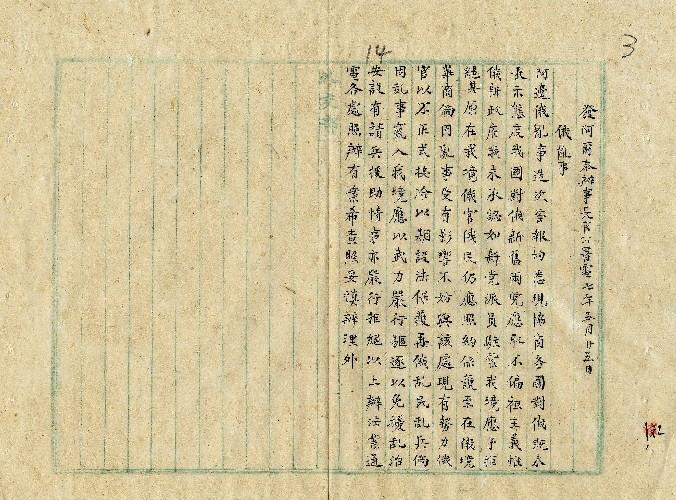 發阿爾泰辦事長官公署電七年五月廿五日
俄亂事
阿邊俄亂事迭次密報均悉現協商各國對俄既未
表示態度我國對俄新舊兩黨應取不偏袒主義惟
俄新政府我未承認如新黨派員駐我境應予拒
絕其原在我境俄官俄民仍應照約保護至在俄境
華商倘因亂事受有影響不妨與該處現有勢力俄
官以不正式接洽以期設法保護再俄乱民乱兵倘
因乱事竄入我境應以武力嚴行驅逐以免擾乱治
安設有請兵援助情事亦嚴行拒絕以上辦法業通
電各處照辦有案希查照妥謀辦理外
14
3